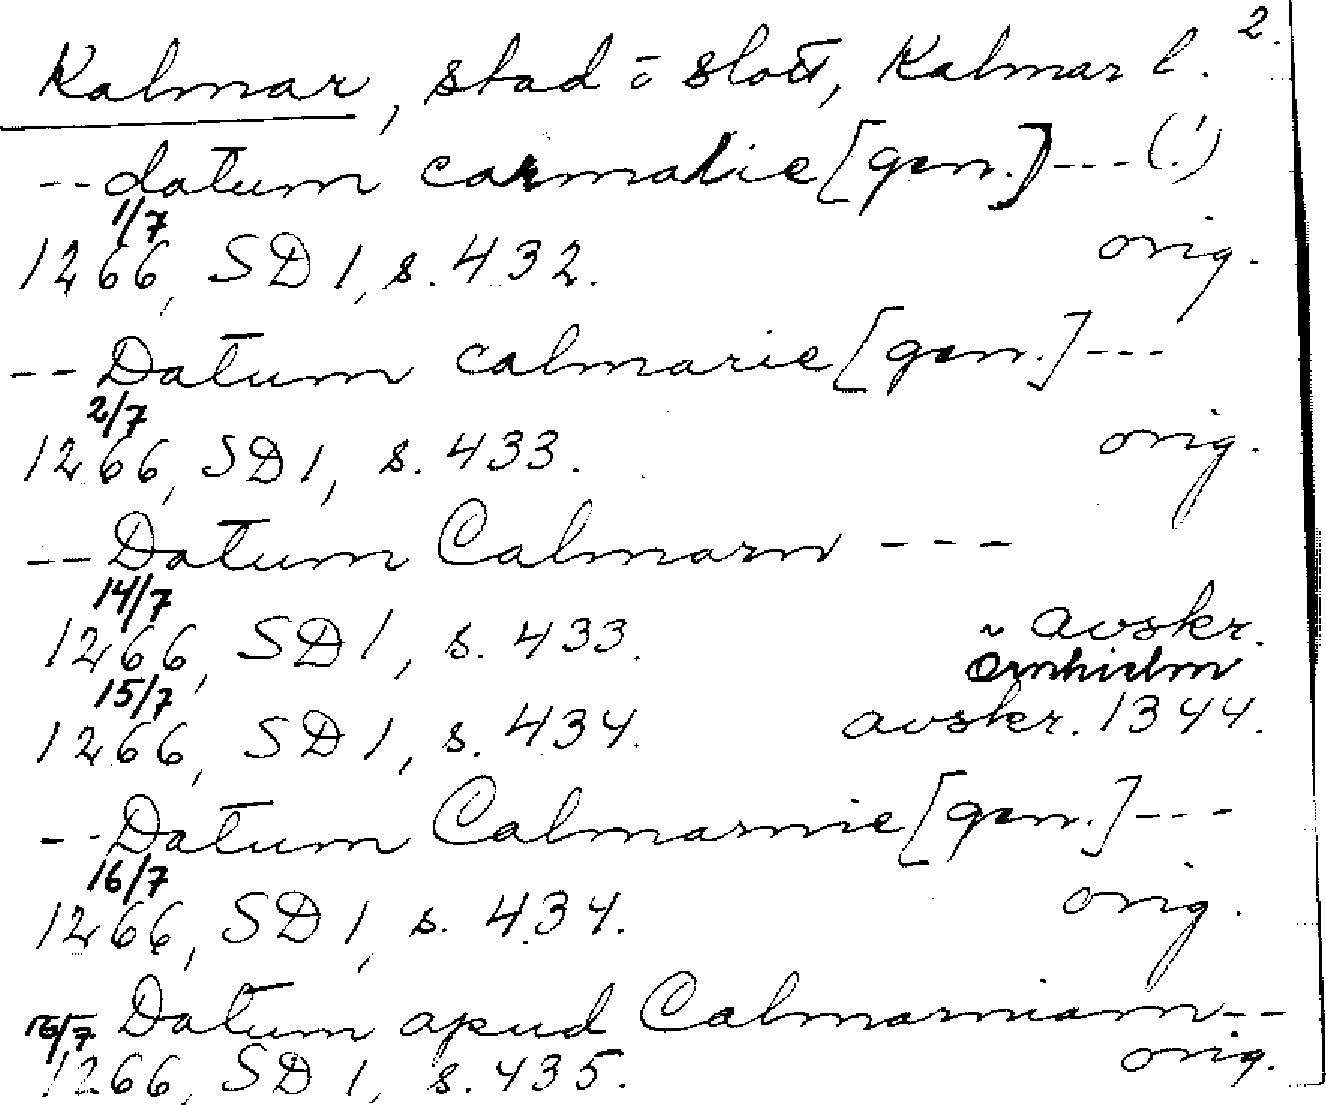 2.
Kalmar, stad o slott, Kalmar l.
-- datum carmalie [gen.] --- (!)
1/7
1266, SD 1, s. 432. orig.
-- Datum calmarie [gen.] ---
2/7
1266, SD 1, s. 433. orig.
-- Datum Calmarn ---
14/7
1266, SD 1, s. 433. avskr.
Örnhielm
15/7
1266, SD 1, s. 434. avskr. 1344.
-- Datum Calmarnie [gen.] ---
16/7
1266, SD 1, s. 434. orig.
16/7 Datum apud Calmarniam --
1266, SD 1, s. 435. orig.